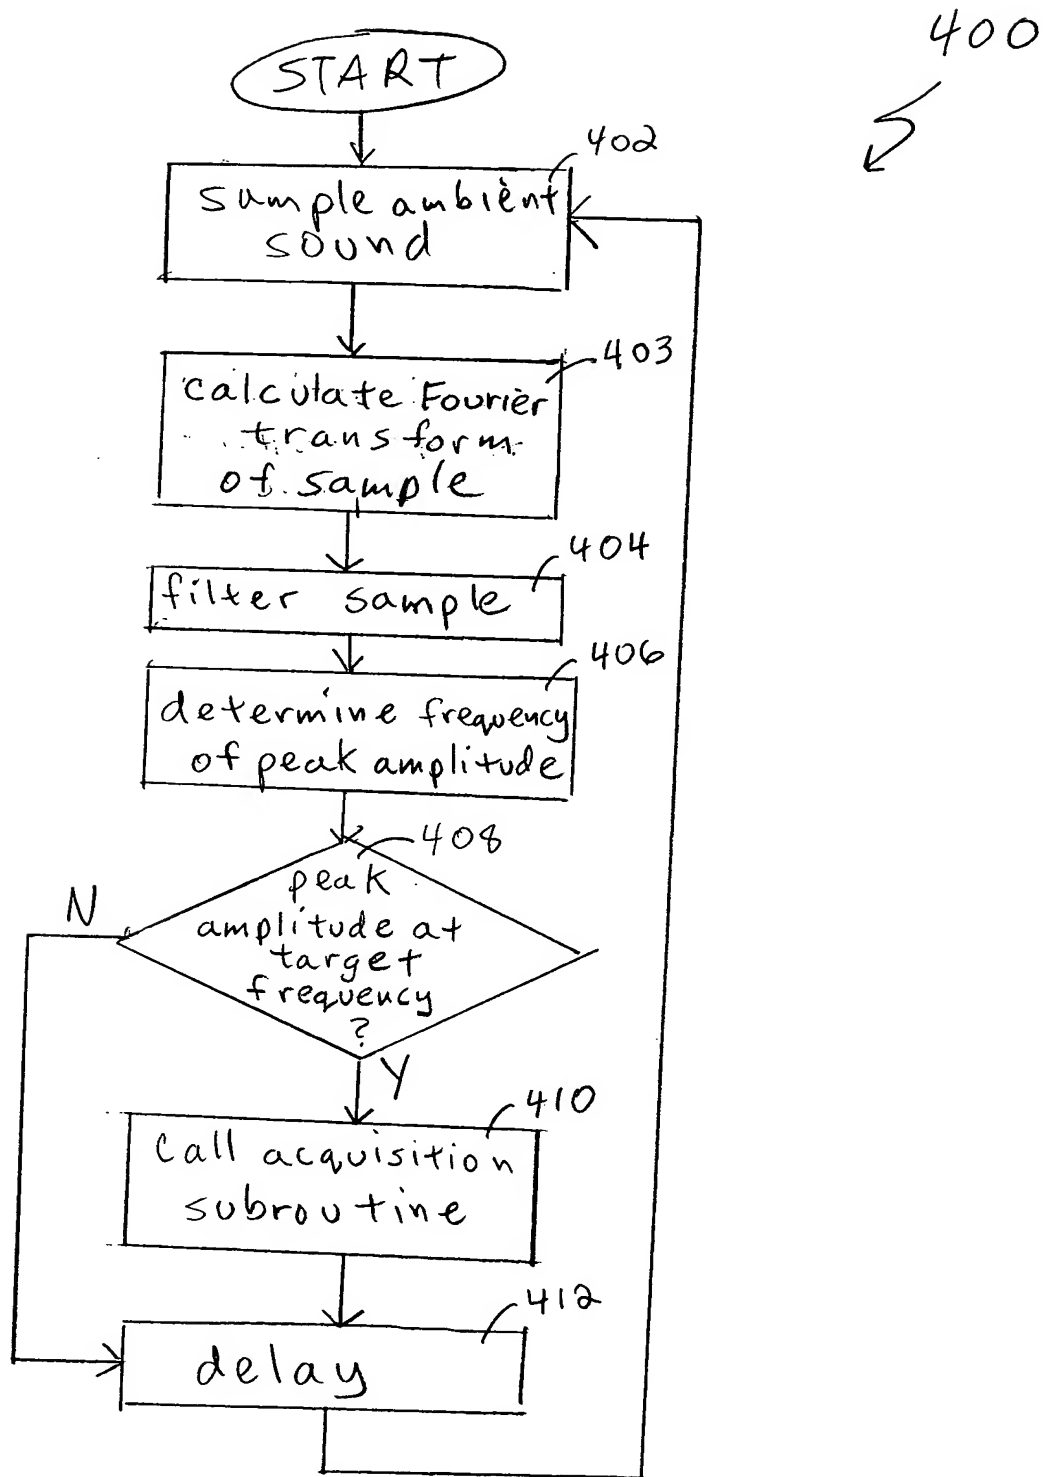 400
START
402
sample ambient
sound
403
calculate Fourier
transform
of sample
404
filter sample
406
determine frequency
of peak amplitude
408
N
peak
amplitude at
target
frequency
?
Y
410
Call acquisition
subroutine
412
delay